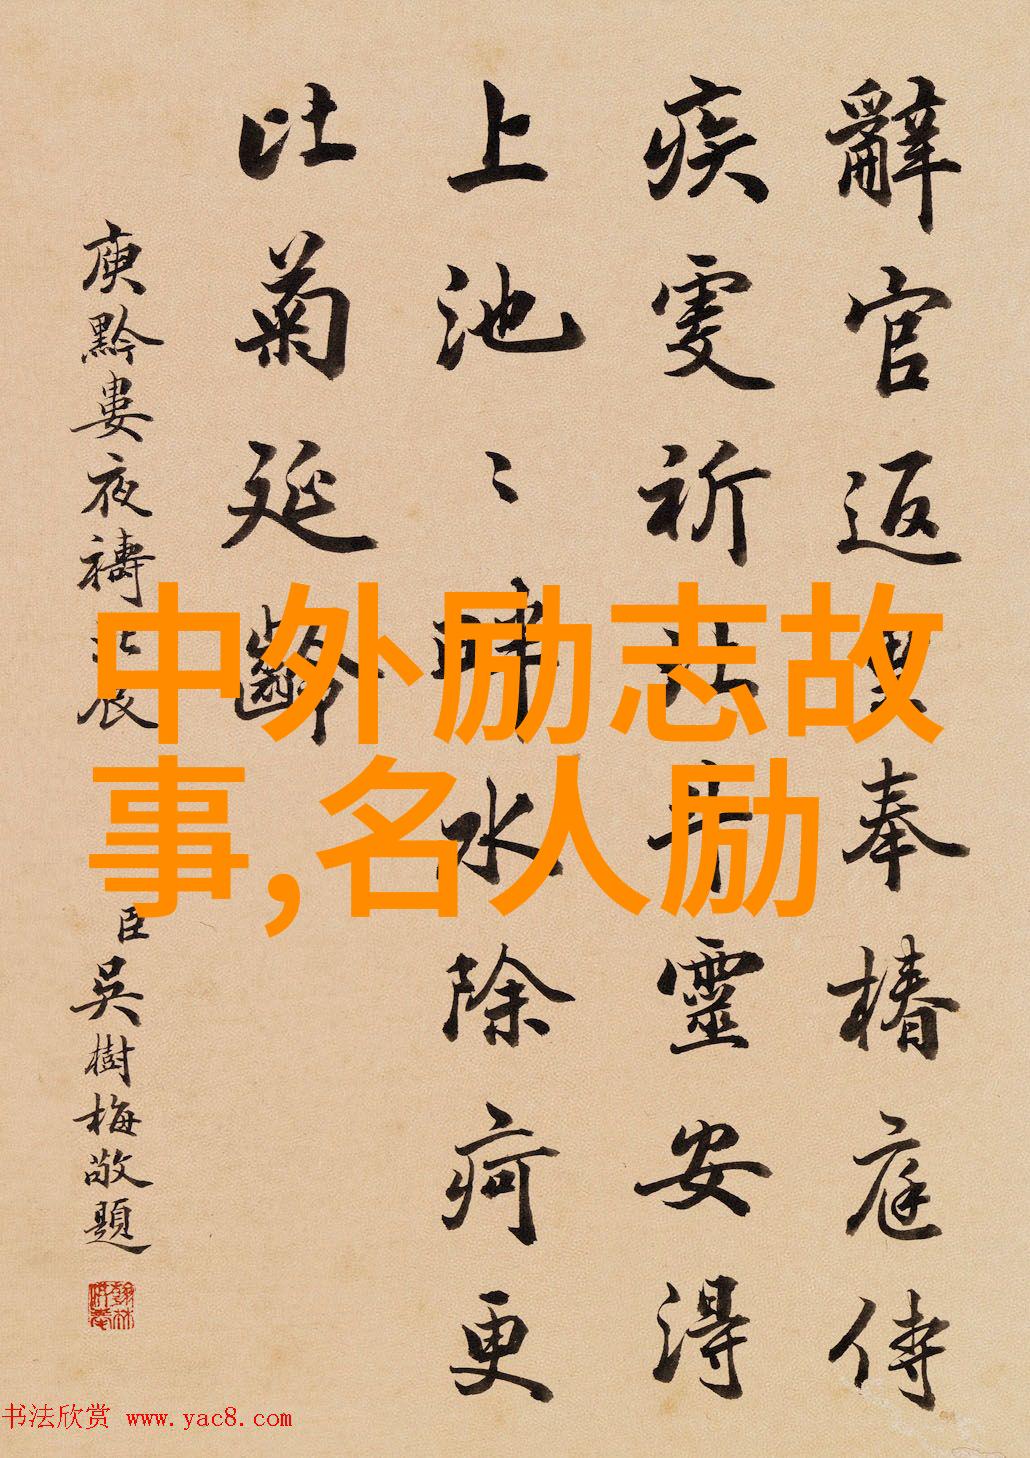 辭官返里奉椿庭侍
疾虔祈北斗靈安得
上池〻畔水除疴更
比菊延齡
庾黔婁夜禱北辰 臣吳樹梅敬題
中外励志故
事,名人励
书法欣赏 www.yac8.com